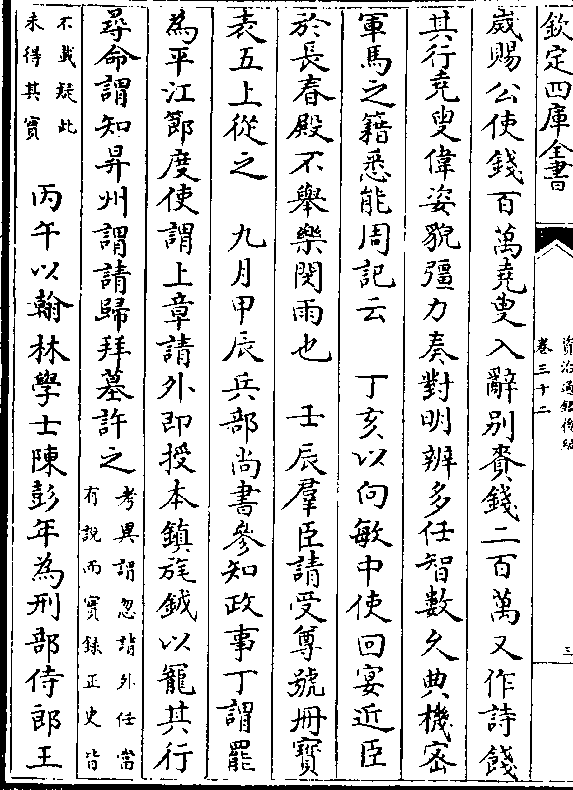 欽定四庫全書
資治通鑑後編
卷三十二
三
歲賜公使錢百萬堯叟入辭別賚錢二百萬又作詩餞
其行堯叟偉姿貌彊力奏對明辨多任智數久典機密
軍馬之籍悉能周記云　丁亥以向敏中使回宴近臣
於長春殿不舉樂閔雨也　壬辰羣臣請受尊號冊寶
表五上從之　九月甲辰兵部尚書參知政事丁謂罷
為平江節度使謂上章請外即授本鎮旄鉞以寵其行
尋命謂知昇州謂請歸拜墓許之考異謂忽請外任當
有說而實錄正史皆
不載疑此
未得其實　丙午以翰林學士陳彭年為刑部侍郎王